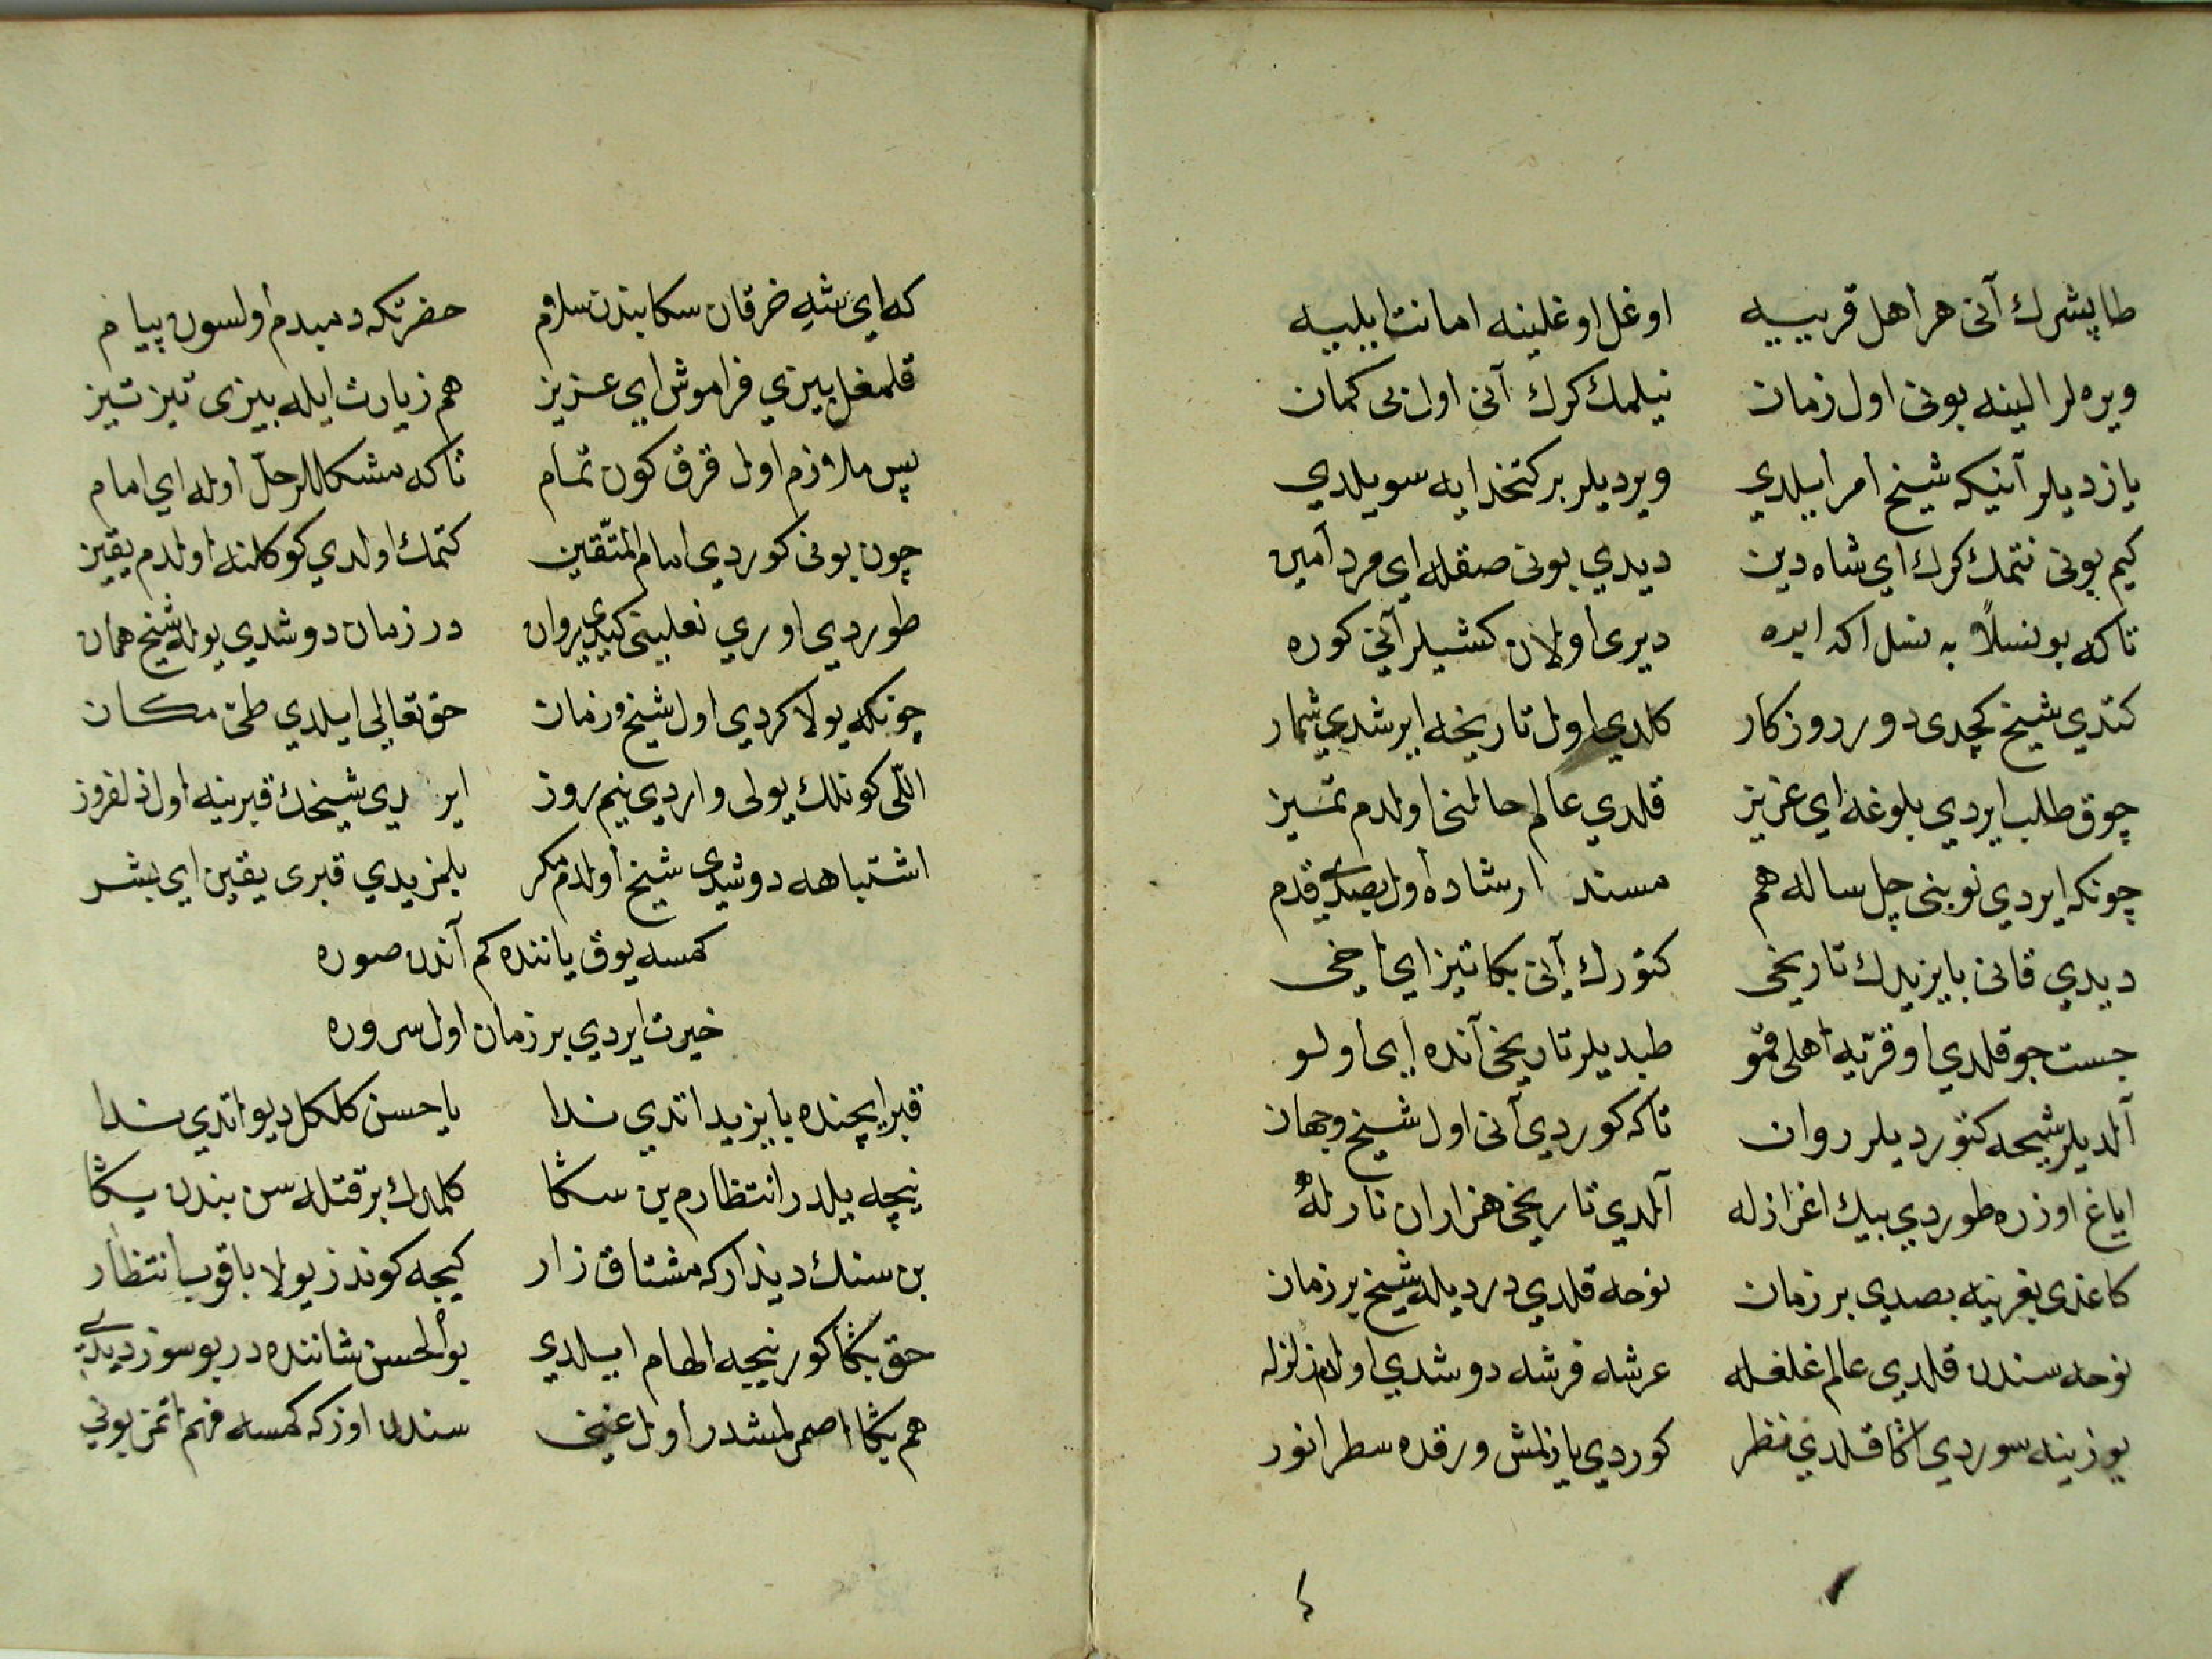 طاپشرك آنی هر اهل قريييه اوغل اوغلينه امانت ايلييه
ويره لر الينه بونی اول زمان نيلمك كرك آنی اول بی كمان
يازديلر آنيكه شيخ أمر أيلدي ويرديلر بر كتخدايه سويلدي
كيم بونی نتمك كرك اي شاه دين ديدي بونی صقله اي مرد أمين
تاكه بو نسلاً به نسل اكه ايره ديری أولان كشيلر آنی كوره
كتدي شيخ كچدی دور روزكار كلدي اول تاريخه ايرشدي شمار
چوق طلب ايردي بلوغه اي عزيز قلدي عالم حالنی اولدم تميز
چونكه ايردي نوبنی چل ساله هم مسند ارشاده أول بصدی قدم
ديدي قانی بايزيدك تاريخی كتورك آنی بكا تيز اي اخی
جست جو قلدي او قريّه أهلی قمو طبديلر تاريخی آنده ای اولو
آلديلر شيخه كتورديلر روان تاكه كوردي آنی اول شيخ جهان
اياغ اوزره طوردي بيك اغرازله آلدي تاريخی هزاران نازله
كاغدی بغرينه بصدي بر زمان نوحه قلدي درديله شيخ بر زمان
نوحه سندن قلدی عالم غلغله عرشه فرشه دوشدي اولدم زلزله
يوزينه سوردي اكا قلدي نظر كوردي يازلمش ورقده سطر انور
كه اي شه خرقان سكا بندن سلام حضرتكه دمبدم أولسون پيام
قلمغل بيزي فراموش اي عزيز هم زيارت ايله بيزی تيز تيز
پس ملازم اول قرق كون تمام تاكه مشكللر حلّ أوله اي امام
چون بونی كوردي امام المتّقين كتمك اولدي كوكلنه اولدم يقين
طوردي اوري نعلينی كيدی روان در زمان دوشدي يوله شيخ همان
چونكه يولا كردي اول شيخ زمان حق تعالی ايلدي طی مكان
اللّی كونلك يولی واردي نيم روز ايردی شيخك قبرينه اول دلفروز
اشتباهه دوشدی شيخ أولدم مكر بلمزيدي قبری يقين اي بشر
كمسه يوق ياننده كم آندن صوره
خيرت ايردي بر زمان اول سروره
قبر ايچنده بايزيد اتدي ندا يا حسن كلكل ديو اتدي ندا
نيچه ييلدر انتظارم بن سكا كلمدك بر قتله سن بندن يكا
بن سنك ديدارکه مشتاق زار كيجه كوندز يولا باقوب انتظار
حق بكا كور نيچه الهام ايلدي بو الحسن شاننده در بو سوز ديدی
هم بكا اصمرلمشدر أول غنی سندن اوزكه كمسه فهم اتمز بونی